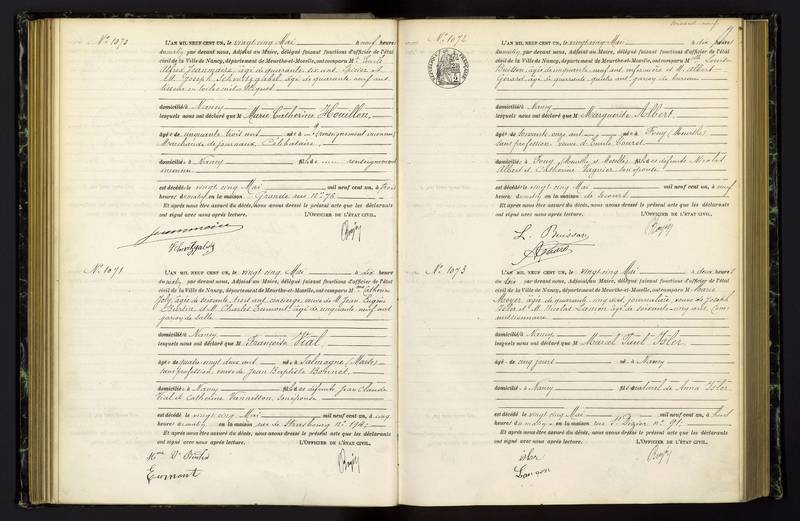 N° 1070
L'AN MIL NEUF CENT UN, le vingt cinq Mai à neuf heures
du matin, par devant nous, Adjoint au Maire, délégué faisant fonctions d'officier de l'état
civil de la Ville de Nancy, département de Meurthe-et-Moselle, ont comparu M Emile
Alfred Jeanmaire, âgé de quarante six ans, épicier et
M. Joseph âgé de quarante neuf ans
domicilié à Nancy
lesquels nous ont déclaré que M Marie Catherine Houillon,
âgée de cinquante trois ans née à (renseignement inconnu)
Marchande de journaux, Célibataire,
domiciliée à Nancy fille de renseignement
inconnu
est décédée le vingt cinq Mai mil neuf cent un, à trois
heures du matin en la maison Grande rue n° 76
Et après nous être assuré du décès, nous avons dressé le présent acte que les déclarants
ont signé avec nous après lecture. L'OFFICIER DE L'ÉTAT CIVIL,
Jeanmaire
N° 1071
L'AN MIL NEUF CENT UN, le vingt cinq Mai à dix heures
du matin, par devant nous, Adjoint au Maire, délégué faisant fonctions d'officier de l'état
civil de la Ville de Nancy, département de Meurthe-et-Moselle, ont comparu M Catherine
Joly, âgée de soixante trois ans, concierge, veuve de M. Jean Eugène
et M. Charles Eumont, âgé de cinquante neuf ans
garçon de salle
domicilié à Nancy
lesquels nous ont déclaré que M Françoise Vial
âgée de quatre vingt deux ans née à Salmagne (Meuse)
sans profession, veuve de Jean Baptiste Bonnet,
domiciliée à Nancy fille de défunts Jean Claude
Vial et Catherine son épouse
est décédée le vingt cinq Mai mil neuf cent un, à cinq
heures du matin en la maison rue de Strasbourg n° 194
Et après nous être assuré du décès, nous avons dressé le présent acte que les déclarants
ont signé avec nous après lecture. L'OFFICIER DE L'ÉTAT CIVIL,
Eumont
N° 1072
L'AN MIL NEUF CENT UN, le vingt cinq Mai à dix heures
du matin, par devant nous, Adjoint au Maire, délégué faisant fonctions d'officier de l'état
civil de la Ville de Nancy, département de Meurthe-et-Moselle, ont comparu M Louise
Buisson, âgée de cinquante neuf ans, infirmière et M. Albert
Gérard, âgé de quarante quatre ans, garçon de bureau
domicilié à Nancy
lesquels nous ont déclaré que M Marguerite Albert,
âgée de soixante cinq ans née à Foug (Meurthe)
sans profession, veuve d'Emile
domiciliée à Foug, Meurthe et Moselle fille de défunts Nicolas
Albert et Catherine Vagnier son épouse
est décédée le vingt cinq Mai mil neuf cent un, à neuf
heures du matin en la maison de secours
Et après nous être assuré du décès, nous avons dressé le présent acte que les déclarants
ont signé avec nous après lecture. L'OFFICIER DE L'ÉTAT CIVIL,
L. Buisson
N° 1073
L'AN MIL NEUF CENT UN, le vingt cinq Mai à deux heures
du soir, par devant nous, Adjoint au Maire, délégué faisant fonctions d'officier de l'état
civil de la Ville de Nancy, département de Meurthe-et-Moselle, ont comparu M Marie
Moyer, âgée de quarante cinq ans, journalière, veuve de Joseph
Isler et M. Nicolas âgé de soixante cinq ans, com
missionnaire
domicilié à Nancy
lesquels nous ont déclaré que M Marcel Paul Isler
âgé de cinq jours né à Nancy
domicilié à Nancy fils naturel de Anna Isler
est décédé le vingt cinq Mai mil neuf cent un, à huit
heures du matin en la maison rue St Dizier n° 91
Et après nous être assuré du décès, nous avons dressé le présent acte que les déclarants
ont signé avec nous après lecture. L'OFFICIER DE L'ÉTAT CIVIL,
isler